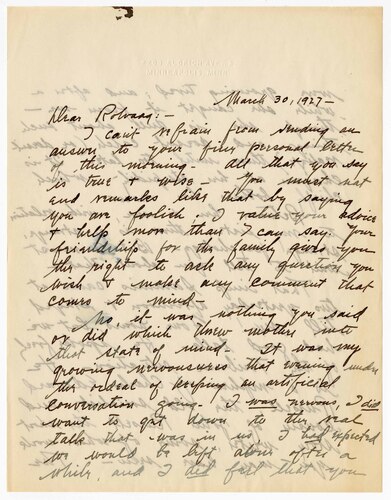 March 30, 1927-
Dear Rolvaag:-
I can't refrain from sending an
answer to your fine personal letter
of this morning. All that you say
is true & wise- You must not
end remarks like that by saying
you are foolish. I value your advice
& help more than I can say. Your
friendship for the family gives you
the right to ask any question you
wish & make any comment that
comes to mind-
No, it was nothing you said
or did which threw mother into
that state of mind- It was my
growing nervousness that evening under
the ordeal of keeping an artificial
conversation going. I was nervous, I did
want to get down to the real
talk that was in us, I had expected
we would be left alone after a
while, and I did feel that you